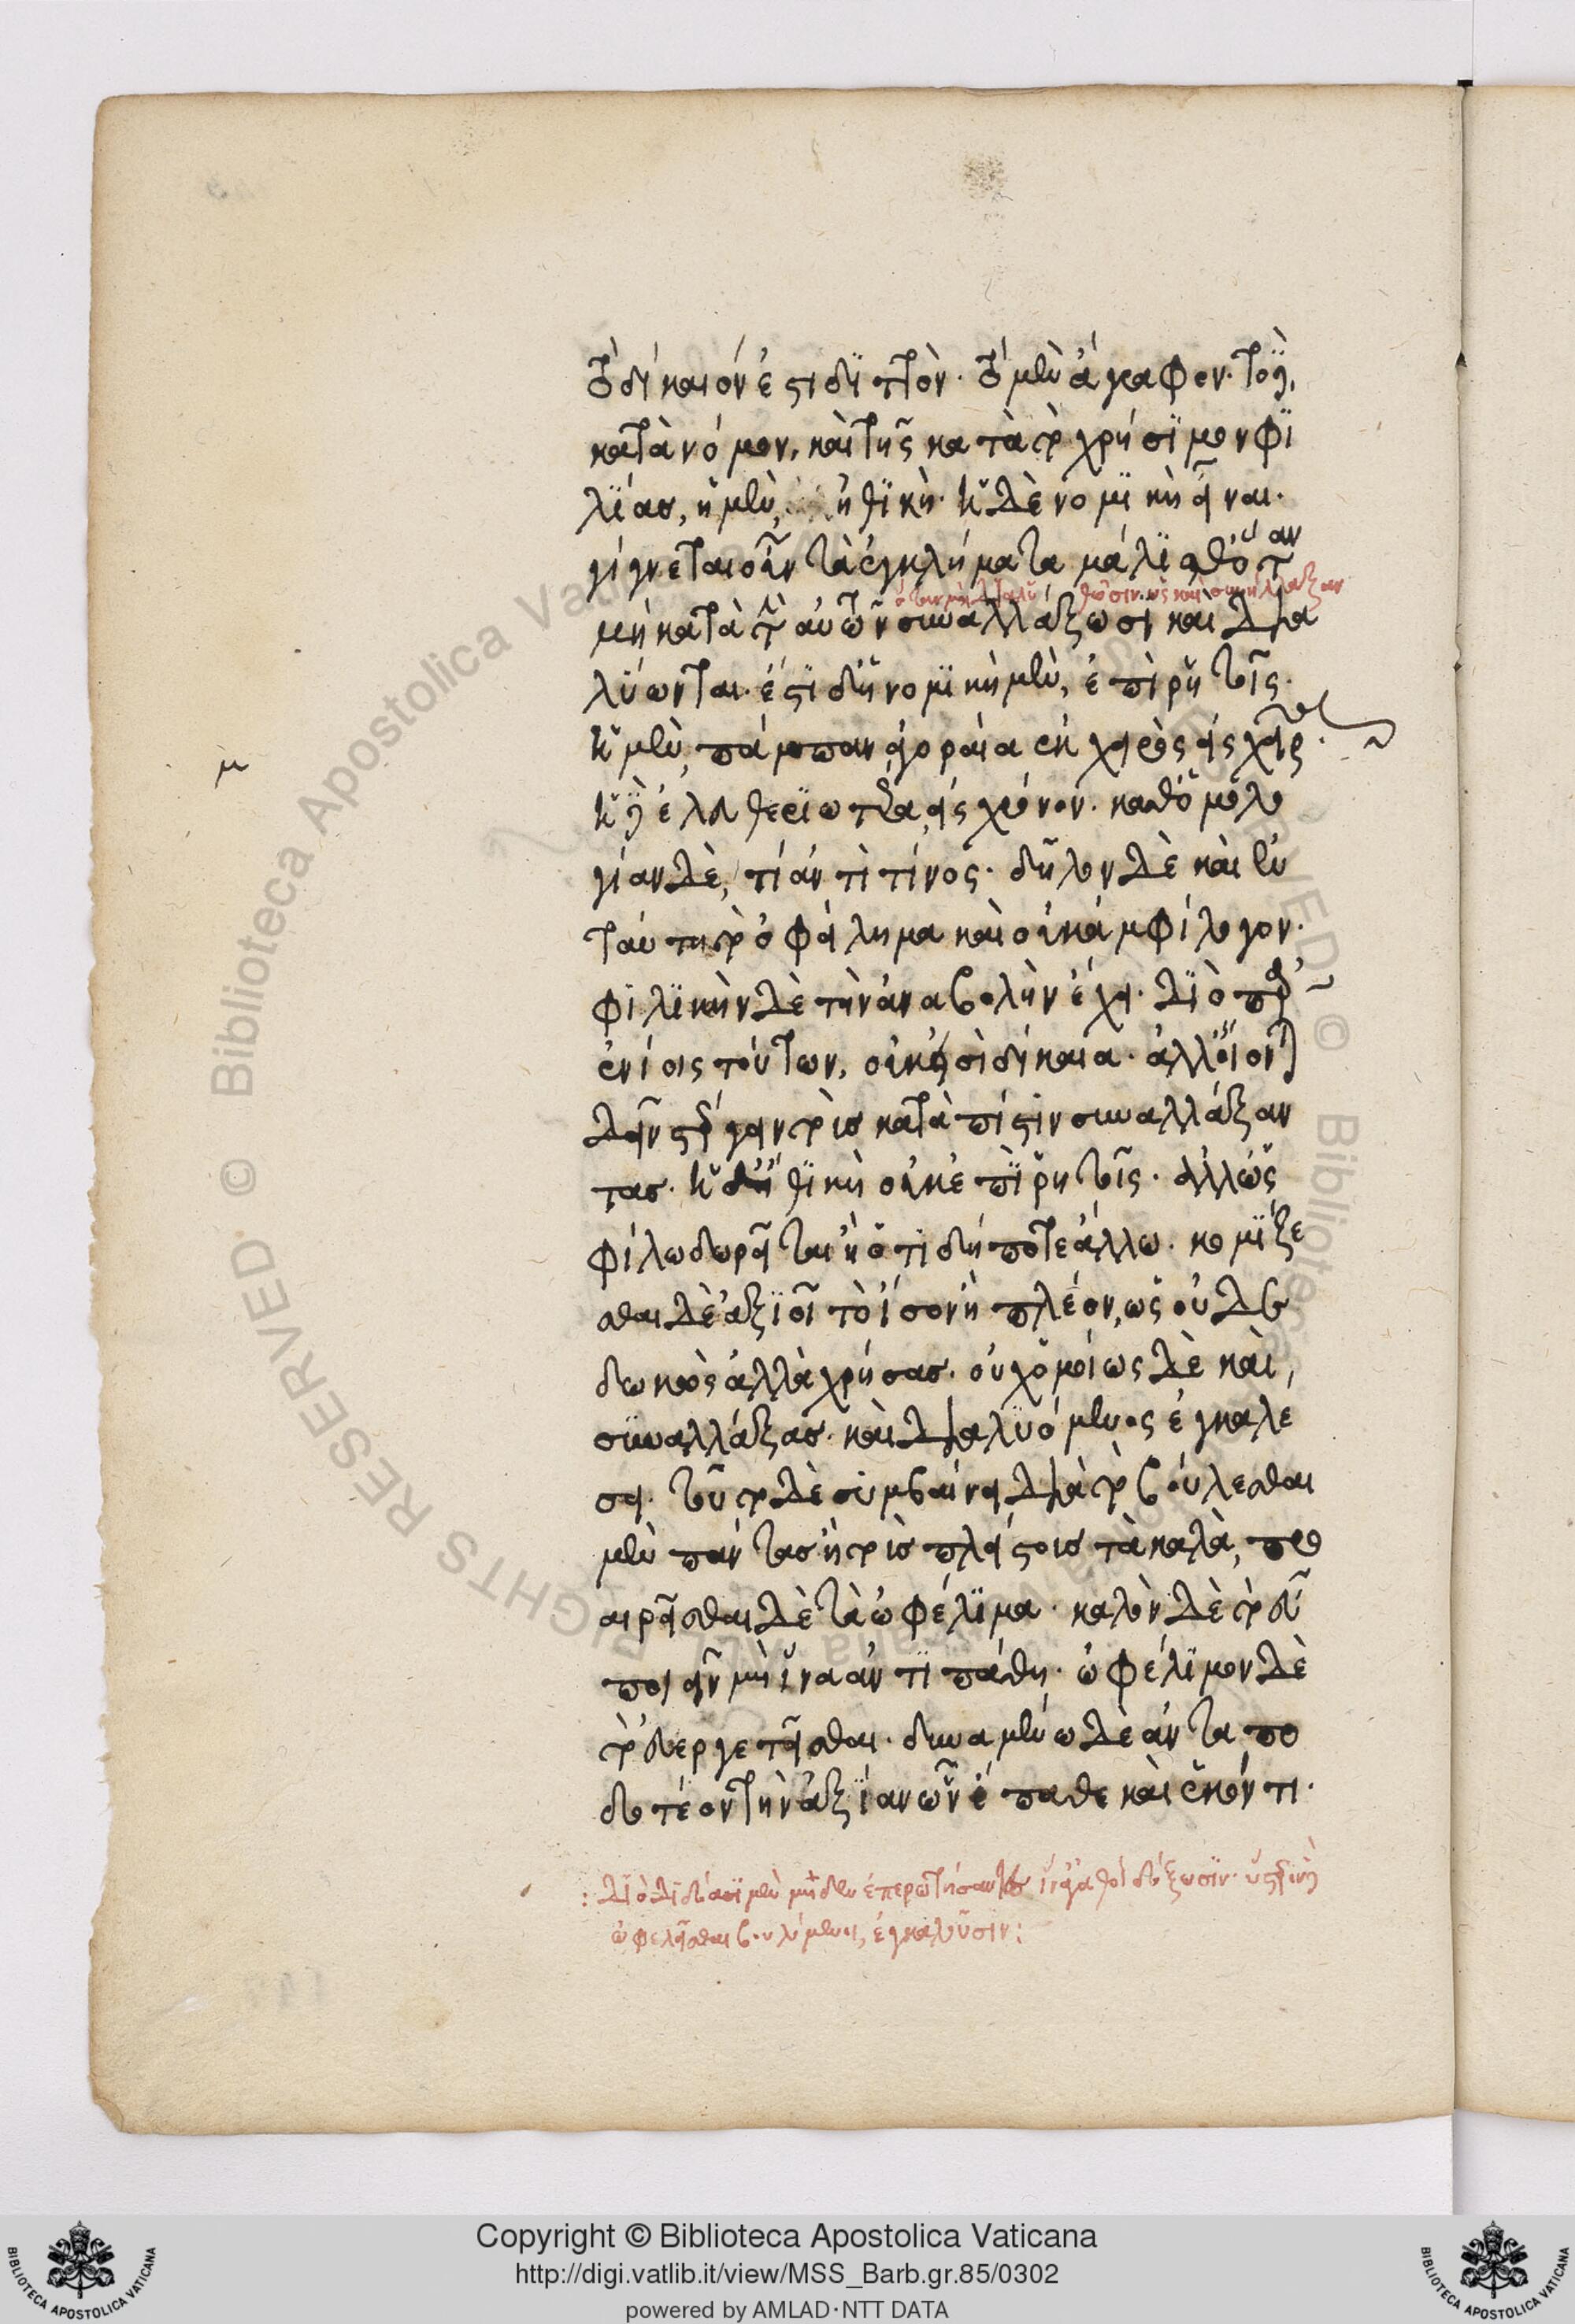 τὸ δίκαιόν ἐστι διττὸν· τὸ μὲν ἄγραφον· τὸ δὲ,
κατὰ νόμον, καὶ τῆς κατὰ τὸ χρήσιμον φι
λίας, ἡ μὲν, ἠθικὴ· ἡ δὲ νομικὴ εἶναι·
γίγνεται οὖν τὰ ἐγκλήματα μάλισθ' ὅταν
μὴ κατὰ τὴν αὐτὴν συναλλάξωσι καὶ δια
ὅταν μὴ διαλυθῶσιν ὡς καὶ συνήλλαξαν
λύωνται· ἔστι δ' ἡ νομικὴ μὲν, ἐπὶ ῥητοῖς·
ἡ μὲν, πάμπαν ἀγοραία ἐκ χειρὸς εἰς χεῖρα·
ἡ δὲ ἐλευθεριωτέρα, εἰς χρόνον· καθ' ὁμολο
γίαν δὲ, τί ἀντὶ τίνος· δῆλον δὲ καὶ ἐν
ταύτῃ τὸ ὀφείλημα καὶ οὐκ ἀμφίλογον·
φιλικὴν δὲ τὴν ἀναβολὴν ἔχει· διὸ παρ'
ἐνίοις τούτων, οὐκ εἰσὶ δίκαια· ἀλλ' οἴονται
δεῖν στέργειν τοὺς κατὰ πίστιν συναλλάξαν
τας· ἡ δ' ἠθικὴ οὐκ ἐπὶ ῥητοῖς· ἀλλ' ὡς
φίλῳ δωρεῖται ἢ ὅτι δήποτε ἄλλω· κομίζε
σθαι δὲ ἀξιοῖ τὸ ἴσον ἢ πλέον, ὡς οὐ δε
δωκὼς ἀλλὰ χρήσας· οὐχ ὁμοίως δὲ καὶ,
συναλλάξας· καὶ διαλυόμενος ἐγκαλέ
σει· τοῦτο δὲ συμβαίνει διὰ τὸ βούλεσθαι
μὲν πάντας ἢ τοὺς πλείστους τὰ καλὰ, προ
αιρεῖσθαι δὲ τὰ ὠφέλιμα· καλὸν δὲ τὸ εὖ
ποιεῖν μὴ ἵνα ἀντιπάθῃ· ὠφέλιμον δὲ
τὸ εὐεργετεῖσθαι· δυναμένω δὲ ἀνταπο
δοτέον τὴν ἀξίαν ὧν ἔπαθε καὶ ἑκόντι·
μ
: διὸ διδόασι μὲν μηδὲν ἐπερωτήσαντες ἵν' ἀγαθοὶ δόξωσιν· ὕστερον δὲ
ὠφελεῖσθαι βουλόμενοι, ἐγκαλοῦσιν:
© Biblioteca Apostolica Vaticana
ALL RIGHTS RESERVED
Copyright © Biblioteca Apostolica Vaticana
http://digi.vatlib.it/view/MSS_Barb.gr.85/0302
powered by AMLAD·NTT DATA
BIBLIOTECA APOSTOLICA VATICANA
BIBLIOTECA APOSTOLICA VATICANA